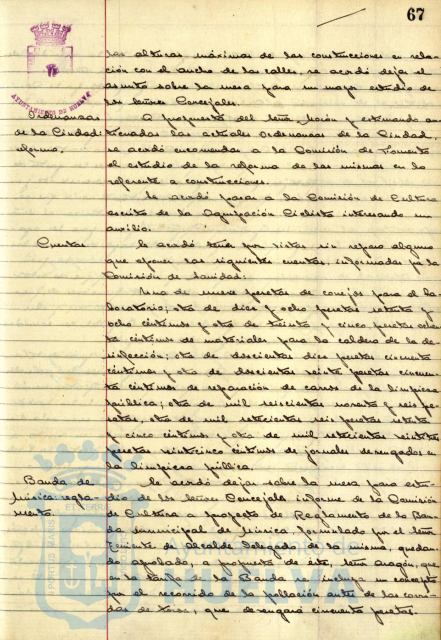 67
AYUNTAMIENTO DE HUELVA
las alturas máximas de las construcciones en rela-
ción con el ancho de las calles, se acordó dejar el
asunto sobre la mesa para un mayor estudio de
los señores Concejales.
Ordenanzas
de la Ciudad:
reforma.
A propuesta del señor y estimando an-
ticuadas las actuales Ordenanzas de la Ciudad,
se acordó encomendar a la Comisión de Fomento
el estudio de la reforma de las mismas en lo
referente a construcciones.
Se acordó pasar a la Comisión de Cultura
escrito de la Agrupación Ciclista interesando un
auxilio.
Cuentas
Se acordó tener por vistas sin reparo alguno
que oponer las siguientes cuentas, informadas por la
Comisión de Sanidad:
Una de nueve pesetas de conejos para el La-
boratorio; otra de diez y ocho pesetas setenta y
ocho céntimos y otra de treinta y cinco pesetas ochen-
ta céntimos de materiales para la caldera de la de-
sinfección; otra de doscientas diez pesetas cincuenta
céntimos y otra de doscientas veinte pesetas cincuen-
ta céntimos de reparación de carros de la limpieza
pública; otra de mil seiscientas noventa y seis pe-
setas, otra de mil setecientas seis pesetas setenta
y cinco céntimos y otra de mil setecientas veintitrés
pesetas veinticinco céntimos de jornales devengados en
la limpieza pública.
Banda de
Música: regla-
mento.
Se acordó dejar sobre la mesa para estu-
dio de los señores Concejales informe de la Comisión
de Cultura a proyecto de Reglamento de la Ban-
da municipal de Música, formulado por el
Teniente de Alcalde delegado de la misma, quedan-
do aprobado, a propuesta de éste, señor Aragón, que
en la tarifa de la Banda se incluya un concepto
por el recorrido de la población antes de las corri-
das de toros, que devengará cincuenta pesetas.